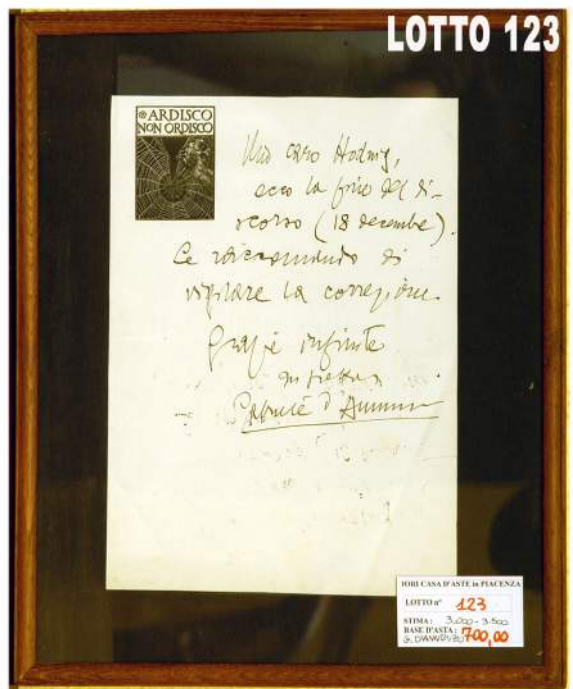 LOTTO 123
ARDISCO
NON ORDISCO
Mio caro Hodnig,
ecco la fine del di-
scorso (18 decembre).
Le raccomando di
vigilare la correzione.
Grazie infinite
in fretta
Gabriele d'Annunzio
IORI CASA D'ASTE in PIACENZA
LOTTO n° 123
STIMA: 3.000 - 3.500
BASE D'ASTA: 700,00
G. D'ANNUNZIO